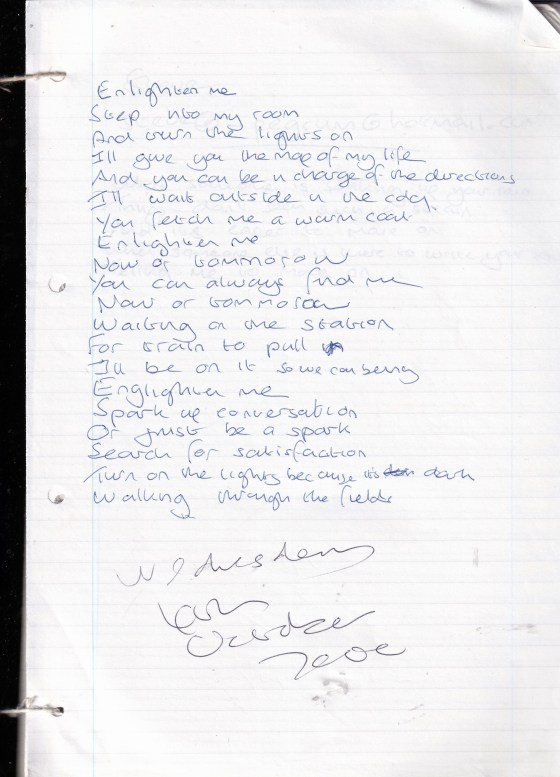 Enlighten me
Step into my room
And turn the lights on
I'll give you the map of my life
And you can be in charge of the directions
I'll wait outside in the cold
You fetch me a warm coat
Enlighten me
Now or tommorow
You can always find me
Now or tommorow
Waiting on the station
For train to pull in
I'll be on it so we can being
Englighten me
Spark up conversation
Or just be a spark
Search for satisfaction
Turn on the lights because its dark
Walking through the fields
Wednesday
October